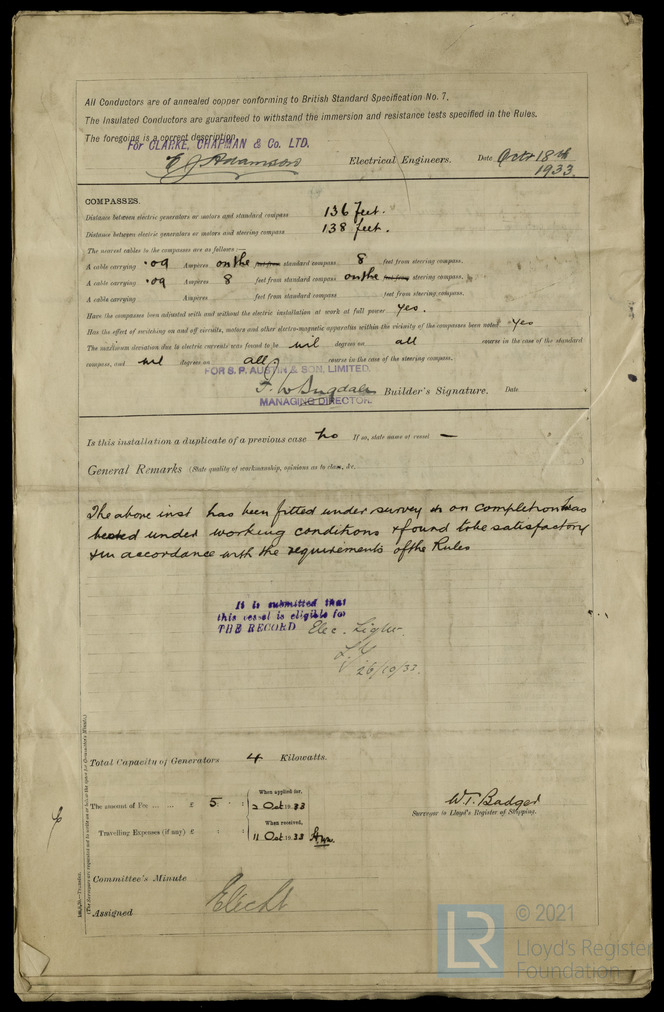 All Conductors are of annealed copper conforming to British Standard Specification No. 7.
The Insulated Conductors are guaranteed to withstand the immersion and resistance tests specified in the Rules.
The foregoing is a correct description.
For CLARKE, CHAPMAN & Co. LTD.
Electrical Engineers. Date Octr 18th 1933.
COMPASSES.
Distance between electric generators or motors and standard compass 136 feet.
Distance between electric generators or motors and steering compass 138 feet.
The nearest cables to the compasses are as follows:—
A cable carrying .09 Ampères on the feet from standard compass 8 feet from steering compass.
A cable carrying .09 Ampères 8 feet from standard compass on the feet from steering compass.
A cable carrying Ampères feet from standard compass, feet from steering compass.
Have the compasses been adjusted with and without the electric installation at work at full power yes.
Has the effect of switching on and off circuits, motors and other electro-magnetic apparatus within the vicinity of the compasses been noted yes
The maximum deviation due to electric currents was found to be nil degrees on all course in the case of the standard
compass, and nil degrees on all course in the case of the steering compass.
FOR S. P. AUSTIN & SON, LIMITED.
Builder's Signature. Date
MANAGING DIRECTOR.
Is this installation a duplicate of a previous case no If so, state name of vessel —
General Remarks (State quality of workmanship, opinions as to class, &c.
The above inst has been fitted under survey & on completion was
tested under working conditions & found to be satisfactory
& in accordance with the requirements of the Rules
It is submitted that
this vessel is eligible for
THE RECORD Elec. Light.
26/10/33.
Total Capacity of Generators 4 Kilowatts.
The amount of Fee ... ... £ 5 : : When applied for, 2 Oct 1933
Travelling Expenses (if any) £ : : When received, 11 Oct 1933
W. T. Badger
Surveyor to Lloyd's Register of Shipping.
Committee's Minute
Assigned Elec Lt
LR
© 2021
Lloyd's Register
Foundation